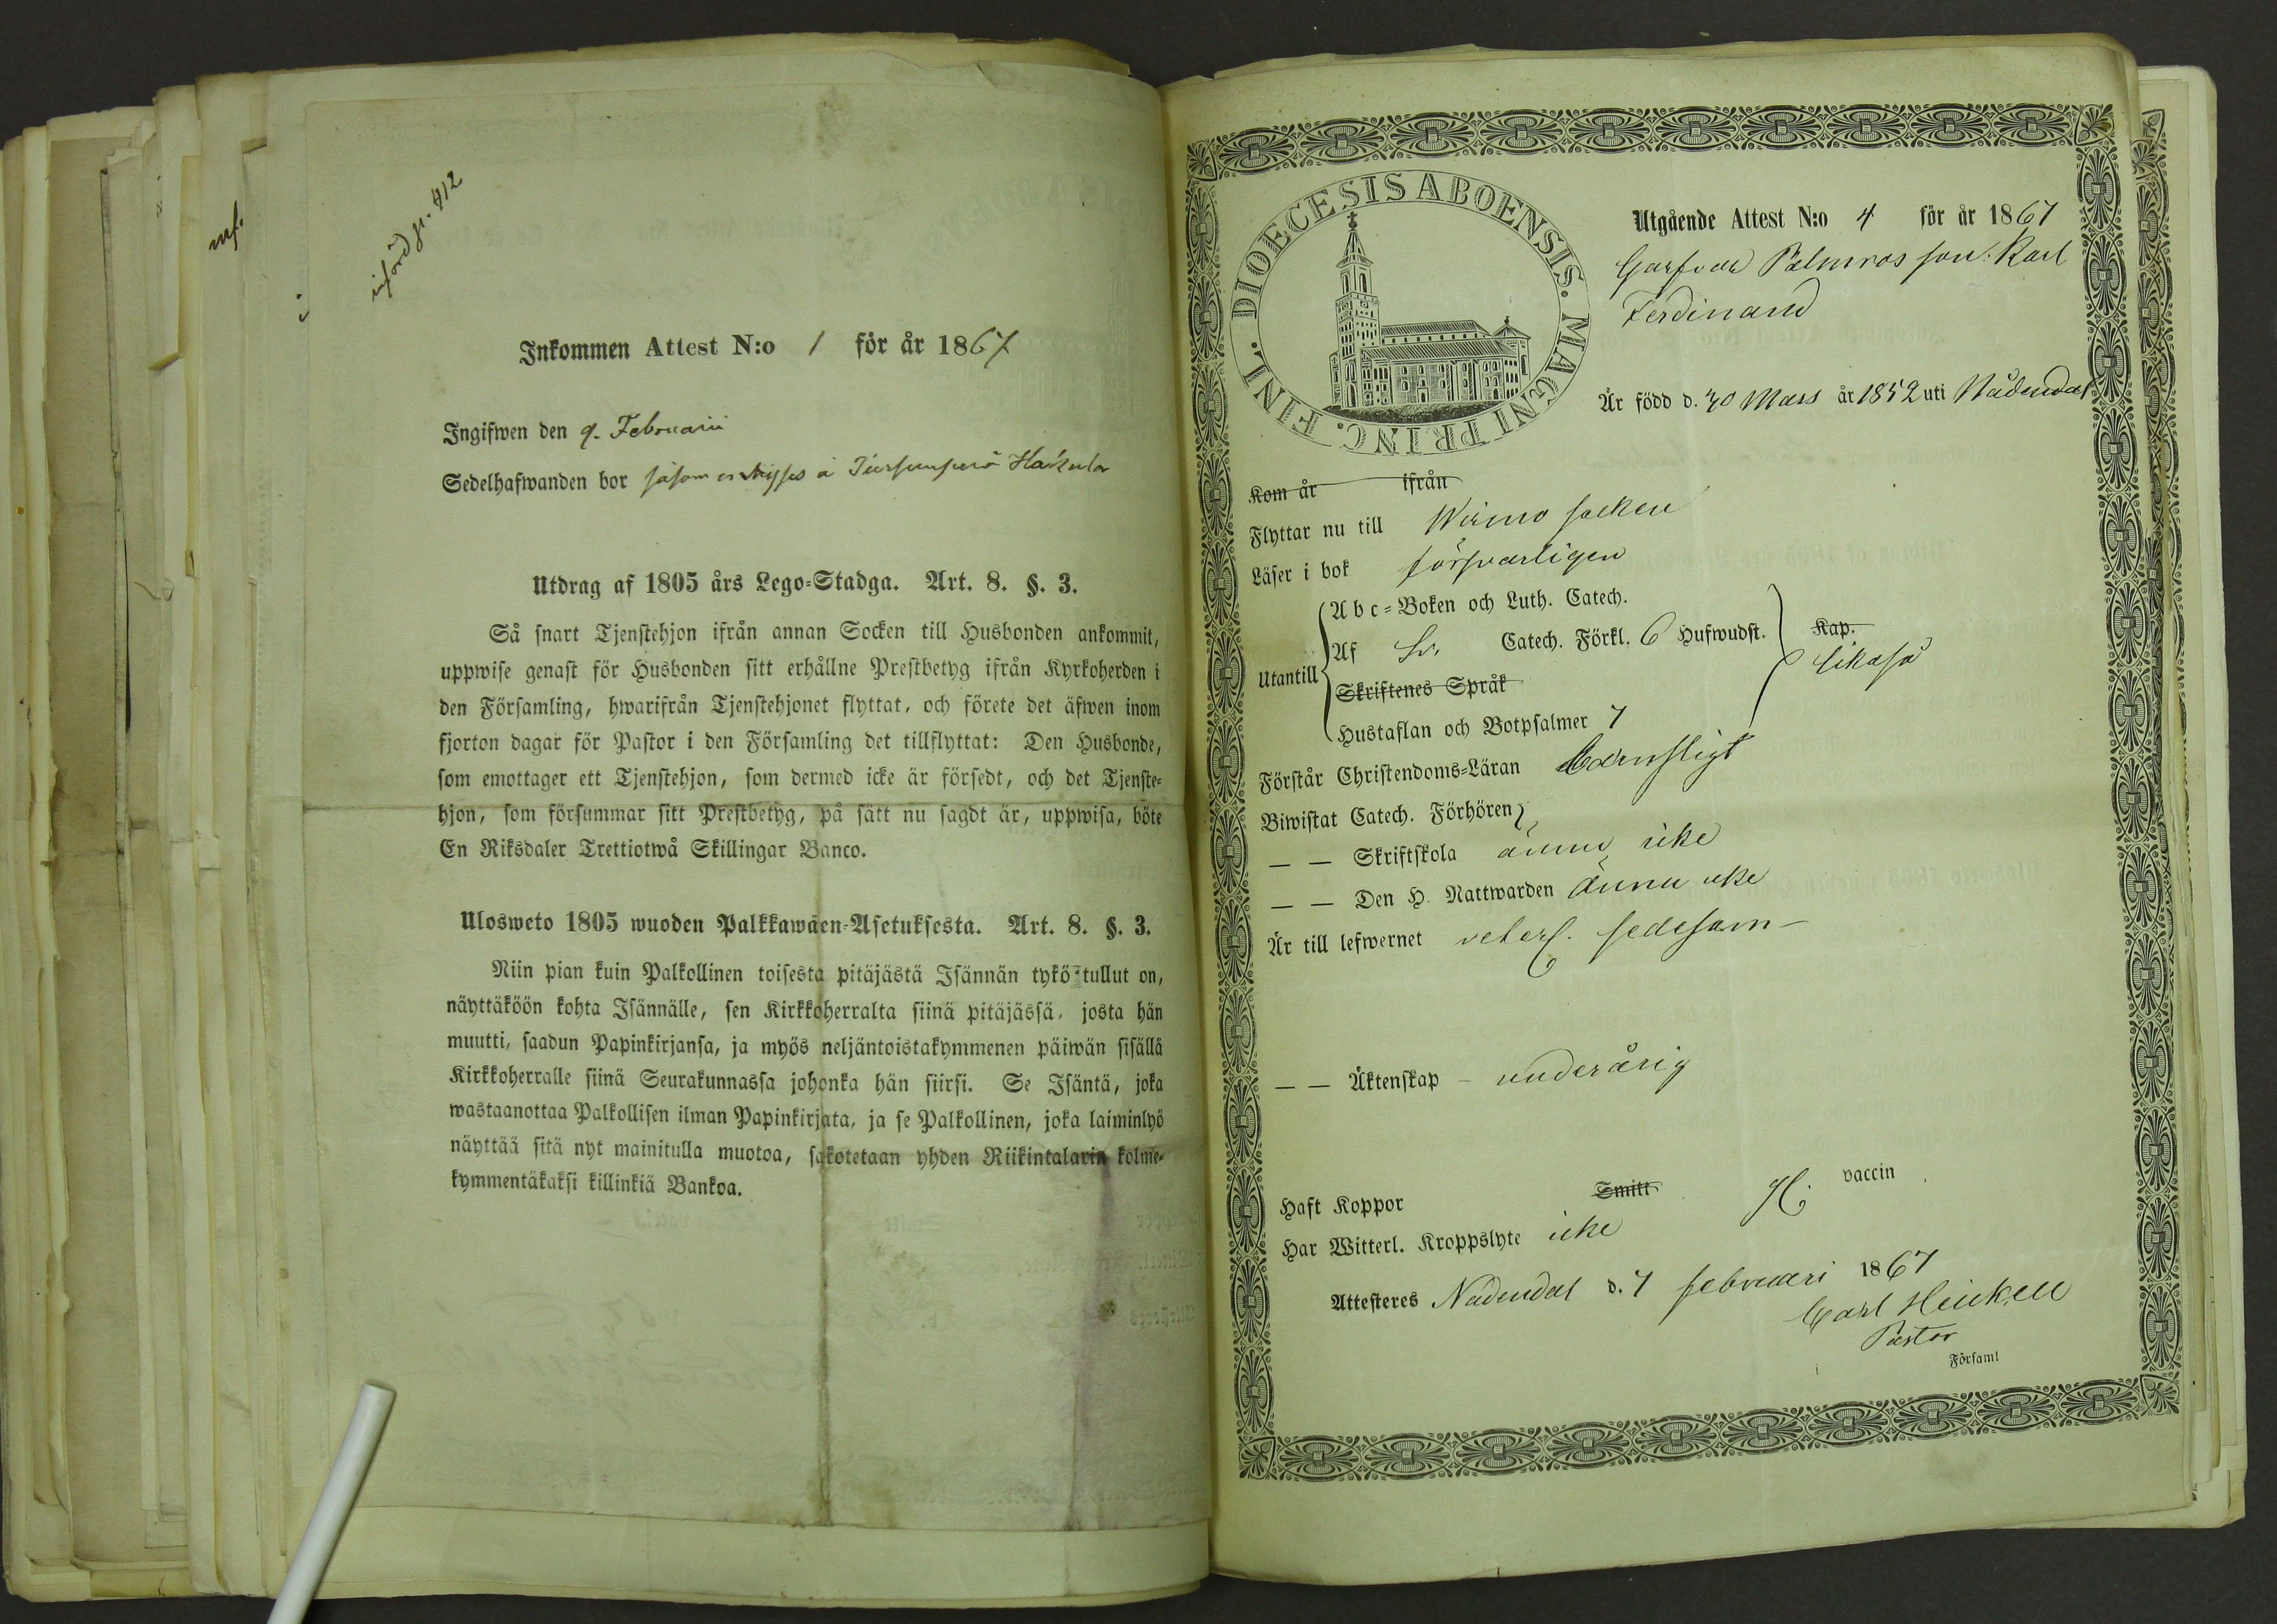 införd p. 412
Inkommen Attest N:o 1 för år 1867
Ingifwen den 9. Februarii
Sedelhafwanden bor såsom å
Utdrag af 1805 års Lego-Stadga. Art. 8. §. 3.
Så snart Tjenstehjon ifrån annan Socken till Husbonden ankommit,
uppwise genast för Husbonden sitt erhållne Prestbetyg ifrån Kyrkoherden i
den Församling, hwarifrån Tjenstehjonet flyttat, och förete det äfwen inom
fjorton dagar för Pastor i den Församling det tillflyttat: Den Husbonde,
som emottager ett Tjenstehjon, som dermed icke är försedt, och det Tjenste-
hjon, som försummar sitt Prestbetyg, på sätt nu sagdt är, uppwisa, böte
En Riksdaler Trettiotwå Skillingar Banco.
Ulosweto 1805 wuoden Palkkawäen-Asetuksesta. Art. 8. §. 3.
Niin pian kuin Palkollinen toisesta pitäjästä Isännän tykö tullut on,
näyttäköön kohta Isännälle, sen Kirkkoherralta siinä pitäjässä, josta hän
muutti, saadun Papinkirjansa, ja myös neljäntoistakymmenen päiwän sisällä
Kirkkoherralle siinä Seurakunnassa johonka hän siirsi. Se Isäntä, joka
wastaanottaa Palkollisen ilman Papinkirjata, ja se Palkollinen, joka laiminlyö
näyttää sitä nyt mainitulla muotoa, sakotetaan yhden Riikintalarin kolme-
kymmentäkaksi killinkiä Bankoa.
DIOECESIS ABOENSIS. MAGNI PRINC. FINL.
Utgående Attest N:o 4 för år 1867
Garfvar Palmros son: Karl
Ferdinand
Är född d. 30 Mars år 1852 uti Nådendal
Kom år ifrån
Flyttar nu till Wirmo socken
Läser i bok försvarligen
Utantill
Abc-Boken och Luth. Catech.
Af Sv. Catech. Förkl. 6 Hufwudst.
Skriftenes Språk
Hustaflan och Botpsalmer 7
Kap.
likaså
Förstår Christendoms-Läran barnsligt
Biwistat Catech. Förhören
— — Skriftskola ännu icke
— — Den H. Nattwarden ännu icke
Är till lefwernet veterl. sedesam —
— — Äktenskap — underårig
Haft Koppor Smitt H. vaccin
Har Witterl. Kroppslyte icke
Attesteres Nådendal d. 7 februari 1867
Carl Heickell
Pastor
i Församl